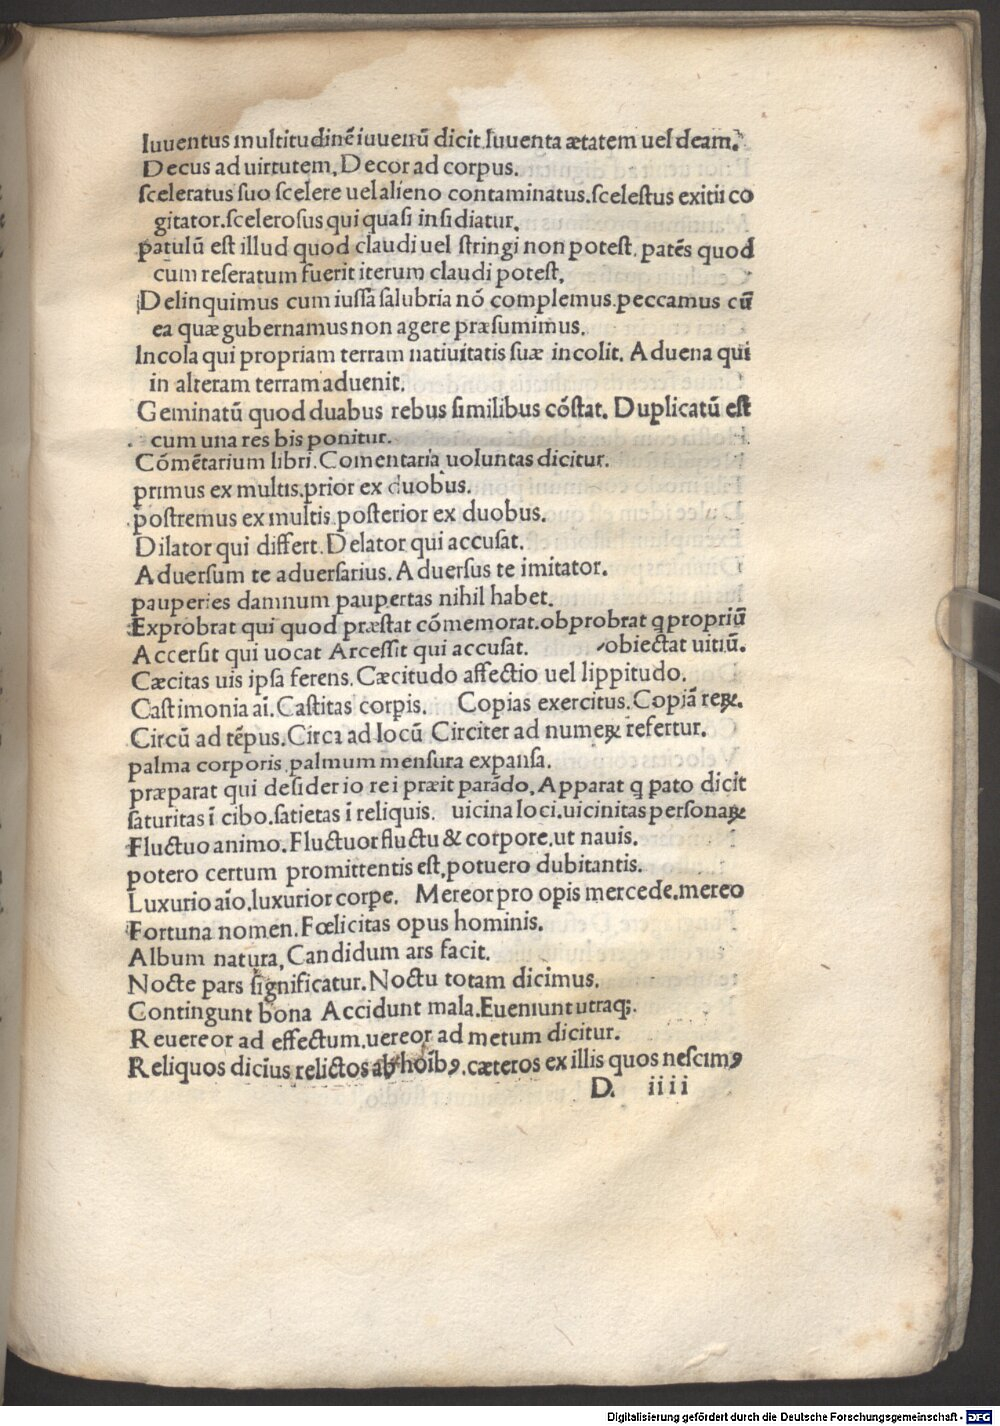 Iuuentus multitudinē iuuenū dicit. Iuuenta ætatem uel deam.
Decus ad uirtutem. Decor ad corpus.
sceleratus suo scelere uel alieno contaminatus. scelestus exitii co
gitator. scelerosus qui quasi insidiatur.
patulū est illud quod claudi uel stringi non potest. patēs quod
cum reseratum fuerit iterum claudi potest.
Delinquimus cum iussa salubria nō complemus. peccamus cū
ea quæ gubernamus non agere præsumimus.
Incola qui propriam terram natiuitatis suæ incolit. Aduena qui
in alteram terram aduenit.
Geminatū quod duabus rebus similibus cōstat. Duplicatū est
cum una res bis ponitur.
Cōmētarium libri. Comentaria uoluntas dicitur.
primus ex multis. prior ex duobus.
postremus ex multis posterior ex duobus.
Dilator qui differt. Delator qui accusat.
Aduersum te aduersarius. Aduersus te imitator.
pauperies damnum paupertas nihil habet.
Exprobrat qui quod præstat cōmemorat. obprobrat q propriū
Accersit qui uocat Arcessit qui accusat. obiectat uitiū.
Cæcitas uis ipsa ferens. Cæcitudo affectio uel lippitudo.
Castimonia aī. Castitas corpis. Copias exercitus. Copiā reꝝ.
Circū ad tēpus. Circa ad locū Circiter ad numeꝝ refertur.
palma corporis. palmum mensura expansa.
præparat qui desiderio rei præit parādo. Apparat q pato dicit
saturitas ī cibo. satietas ī reliquis. uicina loci. uicinitas personaꝝ
Fluctuo animo. Fluctuor fluctu & corpore. ut nauis.
potero certum promittentis est. potuero dubitantis.
Luxurio aīo. luxurior corpe. Mereor pro opis mercede. mereo
Fortuna nomen. Fœlicitas opus hominis.
Album natura. Candidum ars facit.
Nocte pars significatur. Noctu totam dicimus.
Contingunt bona Accidunt mala. Eueniunt utraq;.
Reuereor ad effectum. uereor ad metum dicitur.
Reliquos dicius relictos ab hoībꝯ. cæteros ex illis quos nescimꝯ
D. iiii
Digitalisierung gefördert durch die Deutsche Forschungsgemeinschaft - DFG